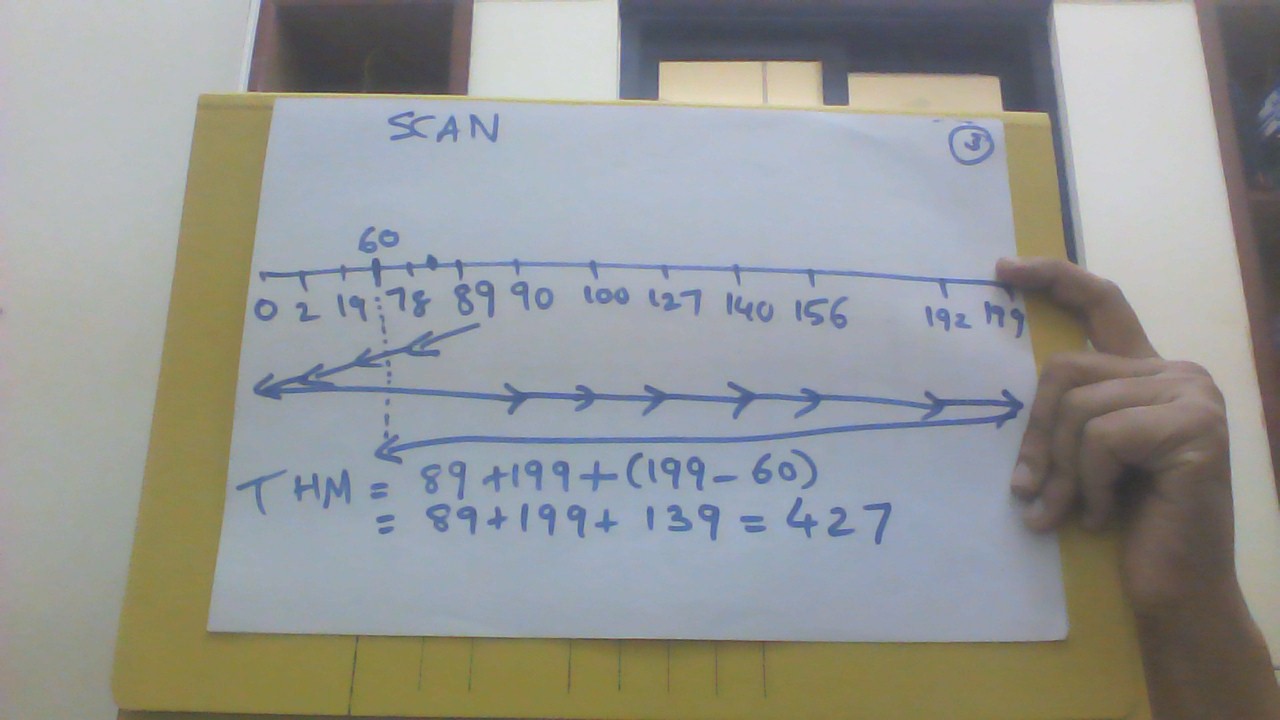 SCAN
3
60
0 2 19 78 89 90 100 127 140 156 192 199
THM = 89 + 199 + (199 - 60)
= 89 + 199 + 139 = 427